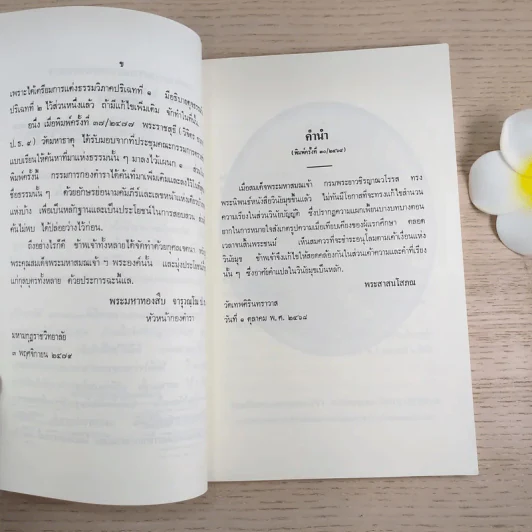 ข
เพราะได้เตรียมการแต่งธรรมวิภาคปริเฉทที่ ๑ มีอธิบาย
ปริเฉทที่ ๒ ไว้ส่วนหนึ่งแล้ว ถ้ามีแก้ไขเพิ่มเติม จักทำในที่นั้น
อนึ่ง เมื่อพิมพ์ครั้งที่ ๓๗/๒๔๗๗ พระราชสุธี
ป.ธ. ๙) วัดมหาธาตุ ได้รับมอบจากที่ประชุมคณะกรรมการ
แบบเรียนให้ค้นหาที่มาแห่งธรรมนั้น ๆ มาลงไว้แผนก ๑
พิมพ์ครั้งนี้ กรรมการกองตำราได้ค้นที่มาเพิ่มเติมและลงไว้
ชื่อธรรมนั้น ๆ ด้วยอักษรย่อนามคัมภีร์และเลขหน้า
แห่งบ้าง เพื่อเป็นหลักฐานและเป็นประโยชน์ในการสอบสวน
ค้นไม่พบ ได้ปล่อยว่างไว้ก่อน
ถึงอย่างไรก็ดี ข้าพเจ้าทั้งหลายได้จัดทำด้วยกุศลเจตนา
พระคุณสมเด็จพระมหาสมณเจ้า ฯ พระองค์นั้น และมุ่งประโยชน์
แก่กุลบุตรทั้งหลาย ด้วยประการฉะนี้แล.
พระมหาทองสืบ จารุวณฺโณ ป.
หัวหน้ากองตำรา
มหามกุฏราชวิทยาลัย
๓ พฤศจิกายน ๒๔๗๙
คำนำ
(พิมพ์ครั้งที่ ๓๐/๒๔๖๘)
เมื่อสมเด็จพระมหาสมณเจ้า กรมพระยาวชิรญาณวโรรส ทรง
พระนิพนธ์หนังสือวินัยมุขขึ้นแล้ว ไม่ทันมีโอกาสที่จะทรงแก้ไขสำนวน
ความเรียงในส่วนวินัยบัญญัติ ซึ่งปรากฏความแผกเพี้ยนบางบทบางตอน
ยากในการหมายใจสังเกตรูปความเมื่อเทียบเคียงของผู้แรกศึกษา ตลอด
เวลาจนสิ้นพระชนม์ เห็นสมควรที่จะชำระอนุโลมตามเค้าเงื่อนแห่ง
วินัยมุข ข้าพเจ้าจึงแก้ไขให้สอดคล้องกันในส่วนเค้าความและคำที่เรื่อง
นั้น ๆ ซึ่งอาศัยคำแปลในวินัยมุขเป็นหลัก.
พระสาสนโสภณ
วัดเทพศิรินทราวาส
วันที่ ๑ ตุลาคม พ.ศ. ๒๔๖๘